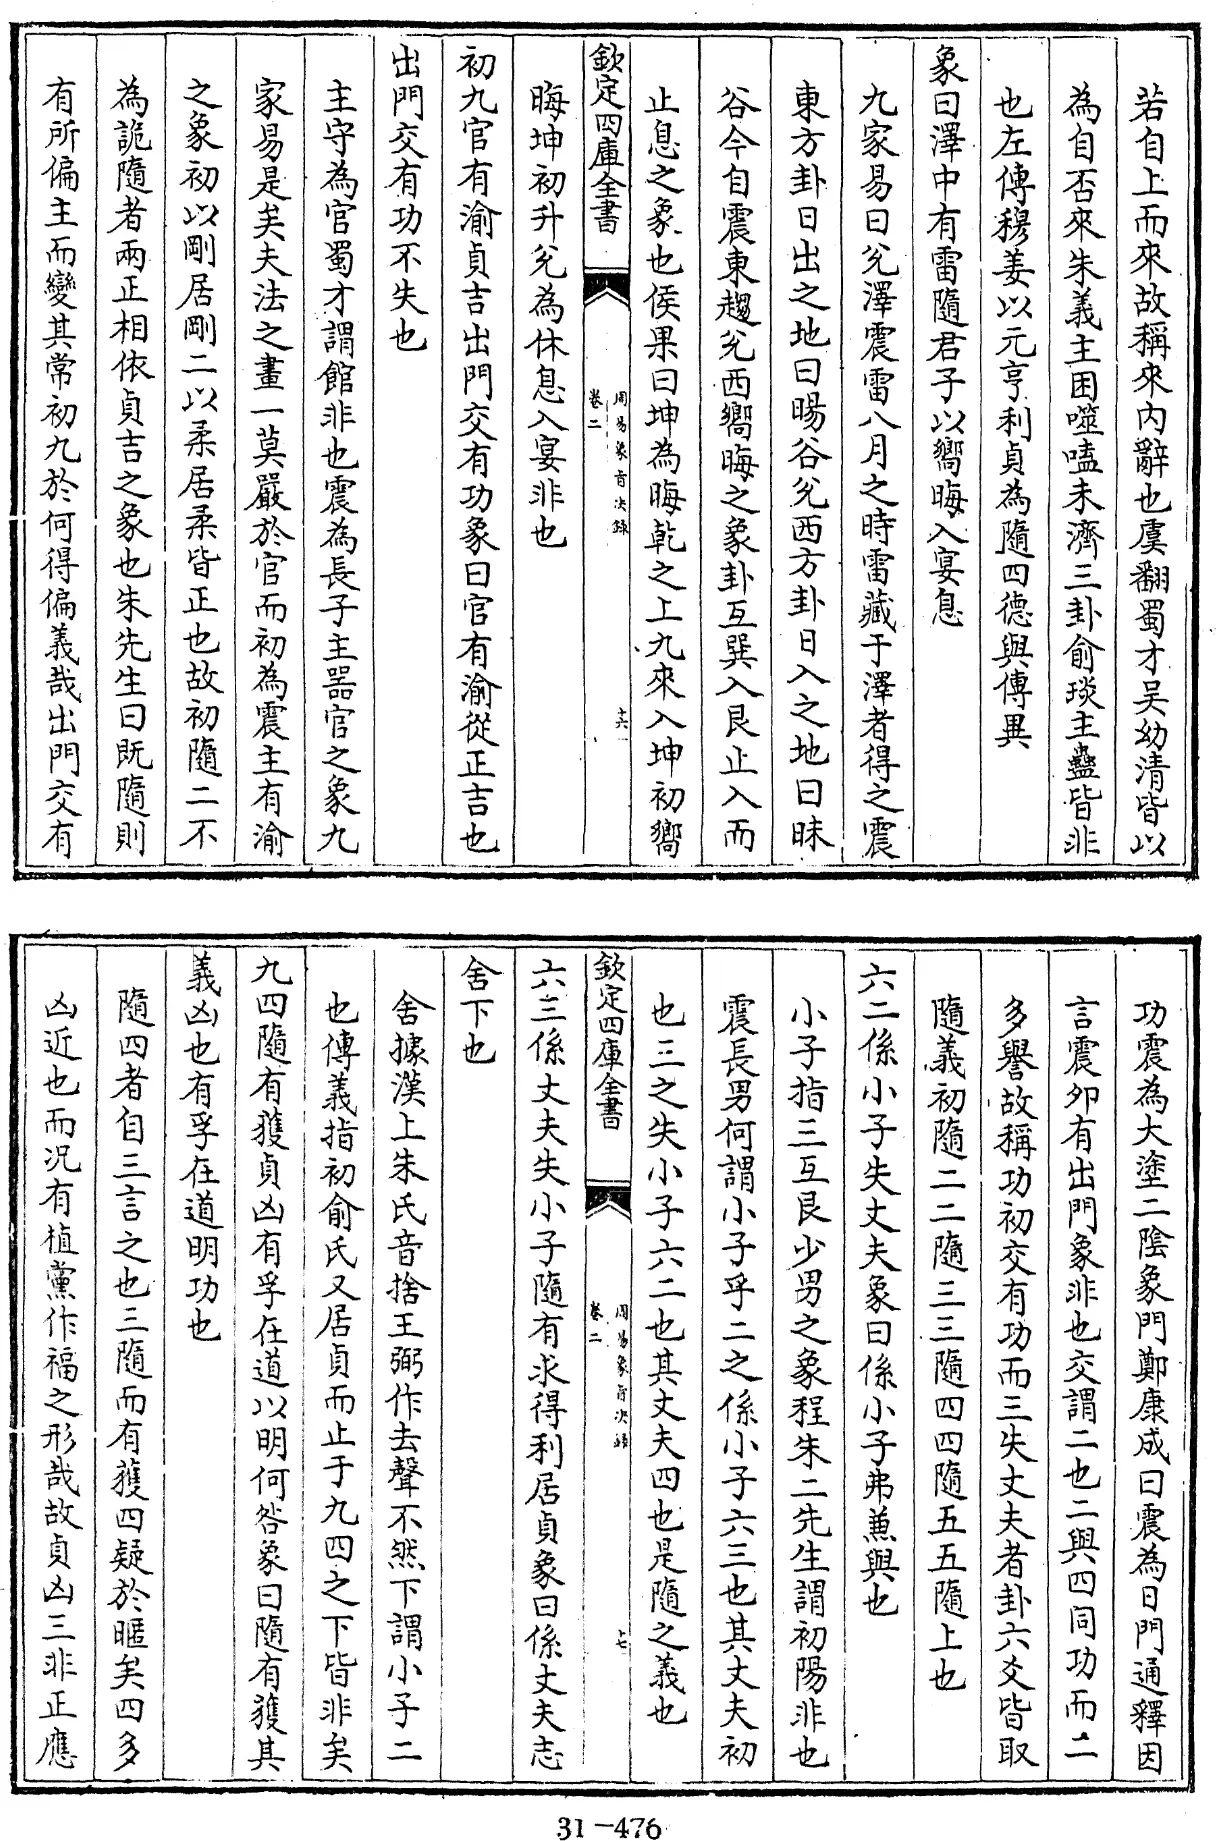 若自上而來故稱來內辭也虞翻蜀才吴幼清皆以
為自否來朱義主困噬嗑未濟三卦俞琰主蠱皆非
也左傳穆姜以元亨利貞為隨四德與傳異
象曰澤中有雷隨君子以嚮晦入宴息
九家易曰兊澤震雷八月之時雷藏于澤者得之震
東方卦日出之地曰暘谷兊西方卦日入之地曰昧
谷今自震東趨兊西嚮晦之象卦互巽入艮止入而
止息之象也侯果曰坤為晦乾之上九來入坤初嚮
欽定四庫全書
周易象旨決錄
卷二
十六
晦坤初升兊為休息入宴非也
初九官有渝貞吉出門交有功象曰官有渝從正吉也
出門交有功不失也
主守為官蜀才謂館非也震為長子主噐官之象九
家易是矣夫法之畫一莫嚴於官而初為震主有渝
之象初以剛居剛二以柔居柔皆正也故初隨二不
為詭隨者兩正相依貞吉之象也朱先生曰既隨則
有所偏主而變其常初九於何得偏義哉出門交有
功震為大塗二陰象門鄭康成曰震為日門通釋因
言震夘有出門象非也交謂二也二與四同功而二
多譽故稱功初交有功而三失丈夫者卦六爻皆取
隨義初隨二二隨三三隨四四隨五五隨上也
六二係小子失丈夫象曰係小子弗兼與也
小子指三互艮少男之象程朱二先生謂初陽非也
震長男何謂小子乎二之係小子六三也其丈夫初
也三之失小子六二也其丈夫四也是隨之義也
欽定四庫全書
周易象旨決錄
卷二
十七
六三係丈夫失小子隨有求得利居貞象曰係丈夫志
舍下也
舍據漢上朱氏音捨王弼作去聲不然下謂小子二
也傳義指初俞氏又居貞而止于九四之下皆非矣
九四隨有獲貞凶有孚在道以明何咎象曰隨有獲其
義凶也有孚在道明功也
隨四者自三言之也三隨而有獲四疑於暱矣四多
凶近也而况有植黨作福之形哉故貞凶三非正應
31-476